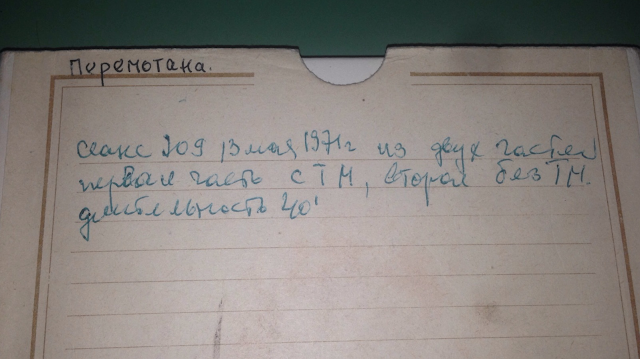 Перемотана.
сеанс 209 13 мая 1971г из двух частей
первая часть с ТМ, вторая без ТМ.
длительность 40'